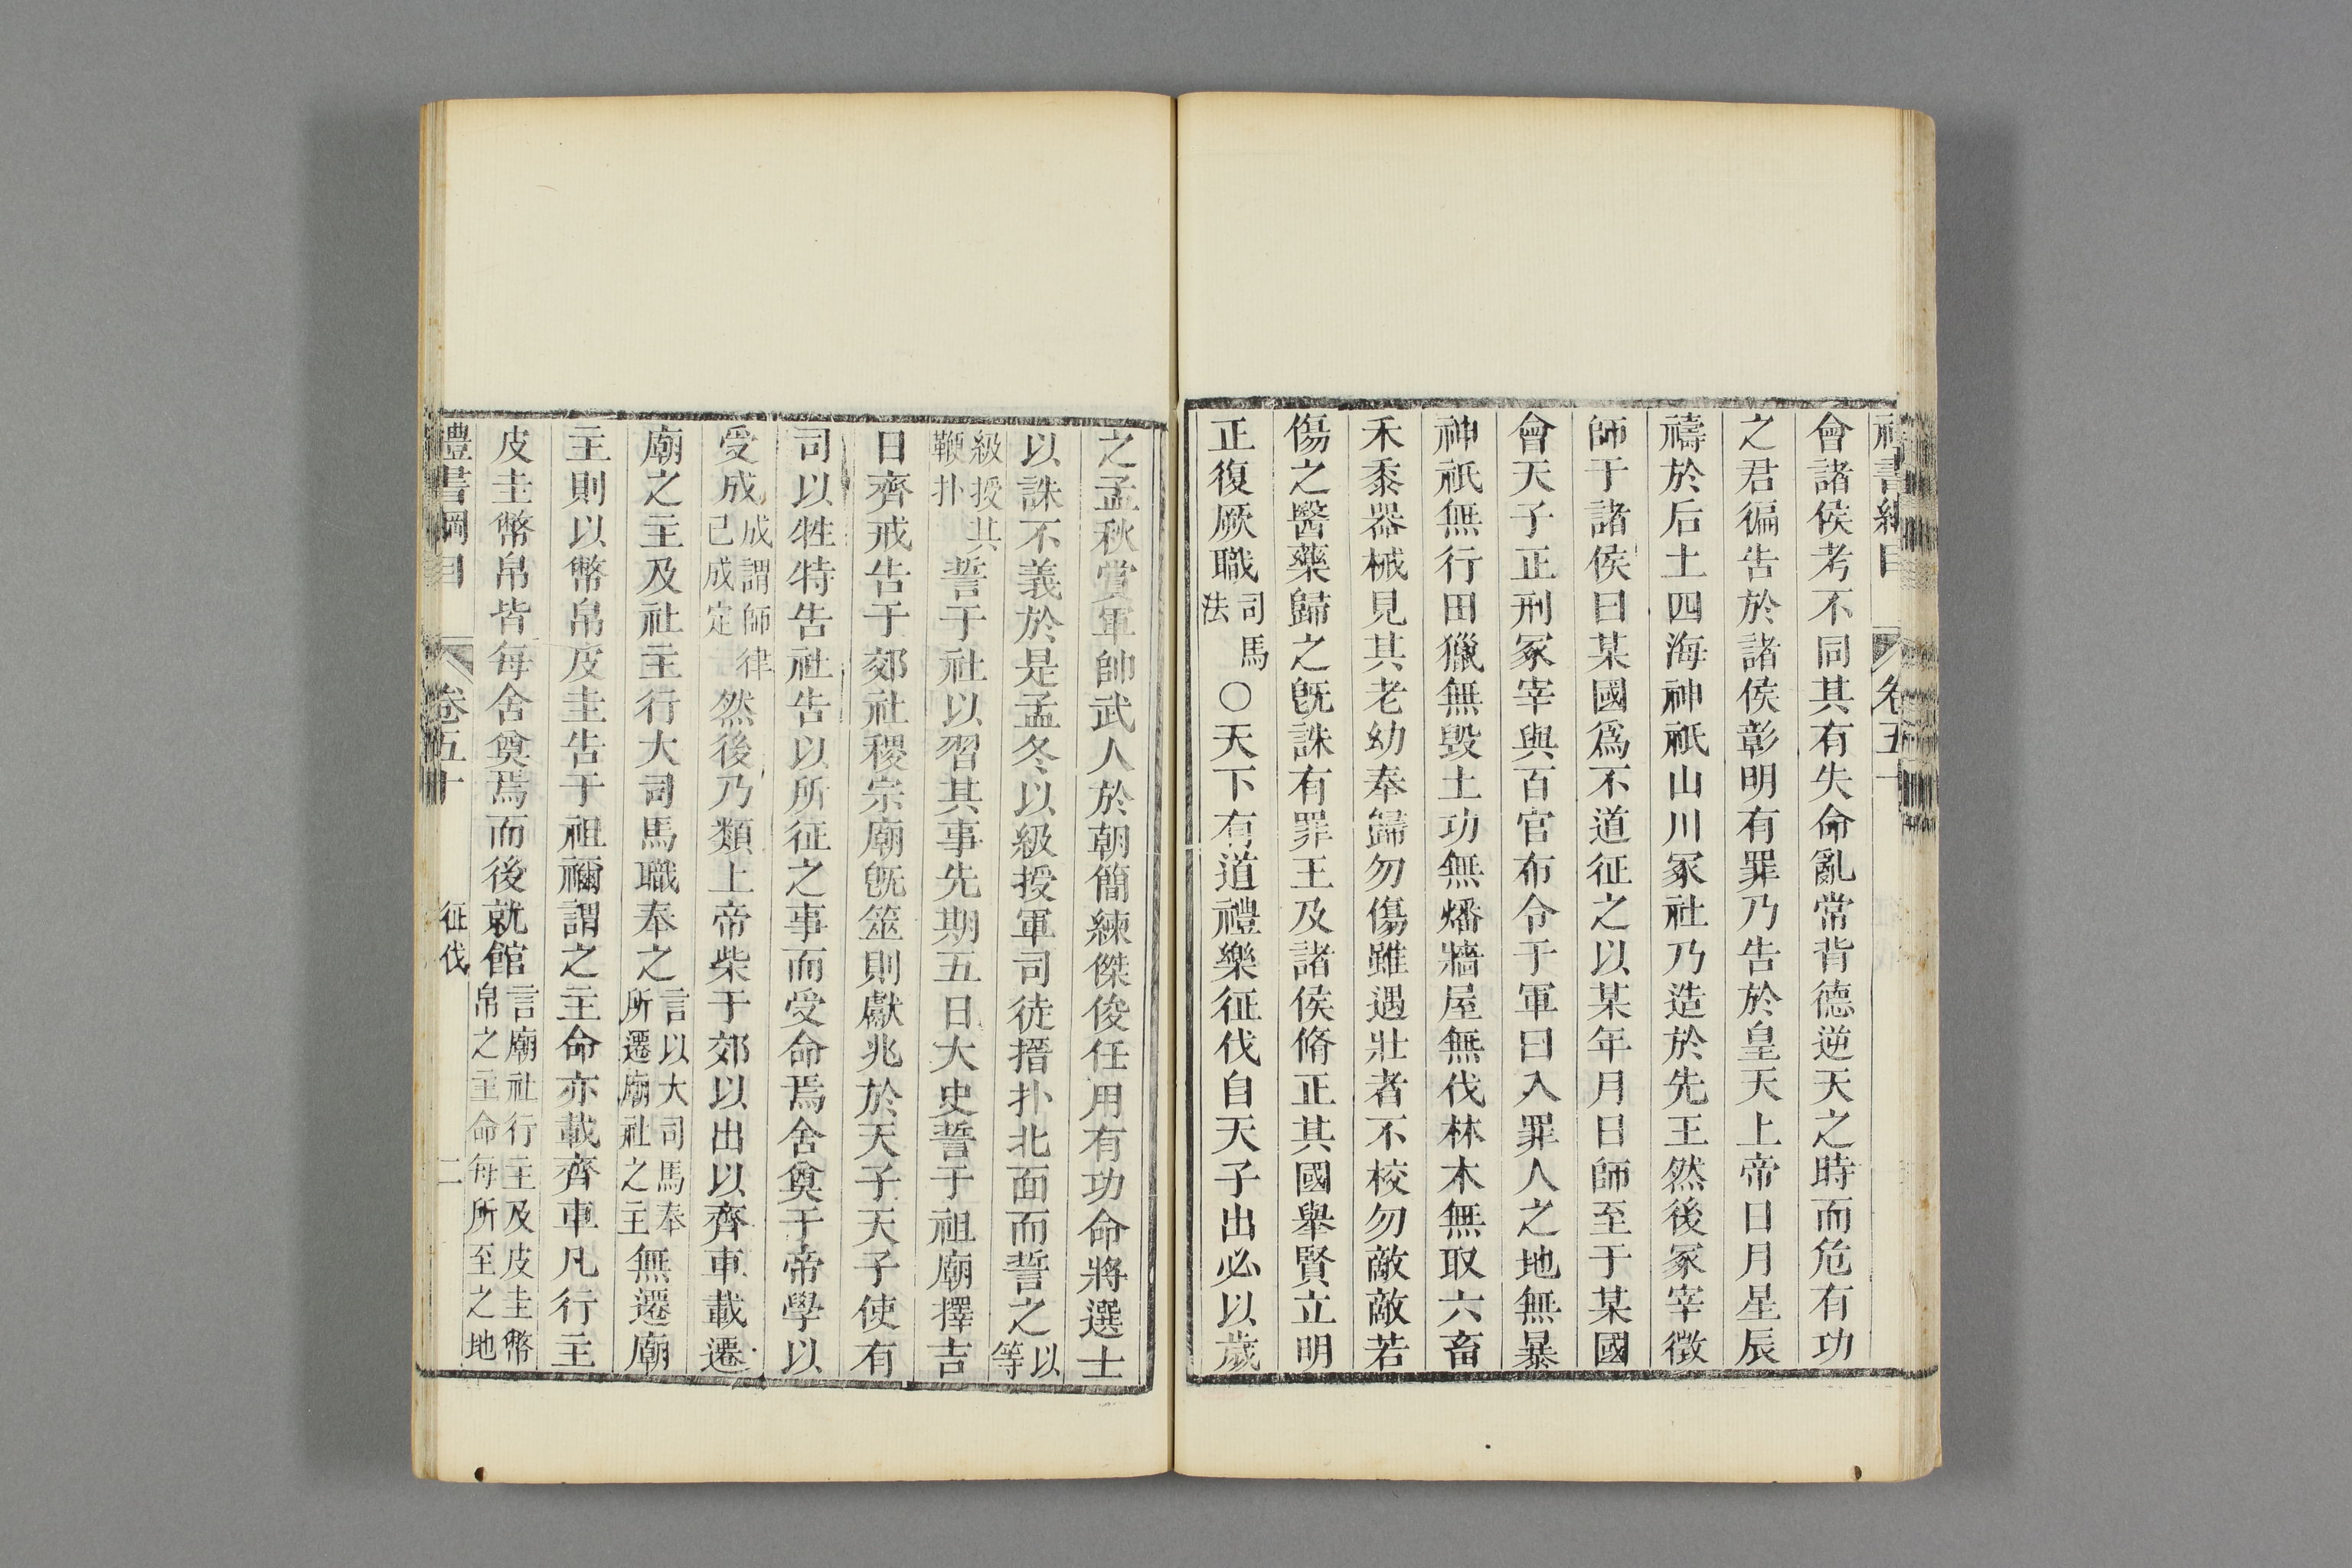 禮書綱目 卷五十
會諸侯考不同其有失命亂常背德逆天之時而危有功
之君徧告於諸侯彰明有罪乃告於皇天上帝日月星辰
禱於后土四海神祇山川冢社乃造於先王然後冢宰徵
師于諸侯曰某國爲不道征之以某年月日師至于某國
會天子正刑冢宰與百官布令于軍曰入罪人之地無暴
神祇無行田獵無毀土功無燔牆屋無伐林木無取六畜
禾黍器械見其老幼奉歸勿傷雖遇壯者不校勿敵敵若
傷之醫藥歸之旣誅有罪王及諸侯脩正其國舉賢立明
正復厥職司馬法○天下有道禮樂征伐自天子出必以歲
之孟秋賞軍帥武人於朝簡練傑俊任用有功命將選士
以誅不義於是孟冬以級授軍司徒搢扑北面而誓之以等
級授其鞭扑誓于社以習其事先期五日大史誓于祖廟擇吉
日齊戒告于郊社稷宗廟旣筮則獻兆於天子天子使有
司以牲特告社告以所征之事而受命焉舍奠于帝學以
受成成謂師律已成定然後乃類上帝柴于郊以出以齊車載遷
廟之主及社主行大司馬職奉之言以大司馬奉所遷廟社之主無遷廟
主則以幣帛皮圭告于祖禰謂之主命亦載齊車凡行主
皮圭幣帛皆每舍奠焉而後就館言廟社行主及皮圭幣帛之主命每所至之地
禮書綱目 卷五十 征伐 二